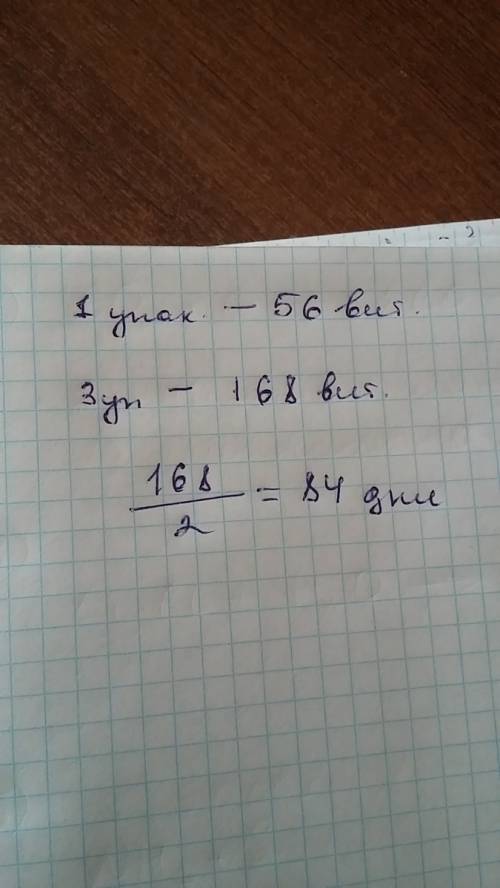 1 упак. - 56 вит.
3 уп - 168 вит.
168
2
= 84 дни